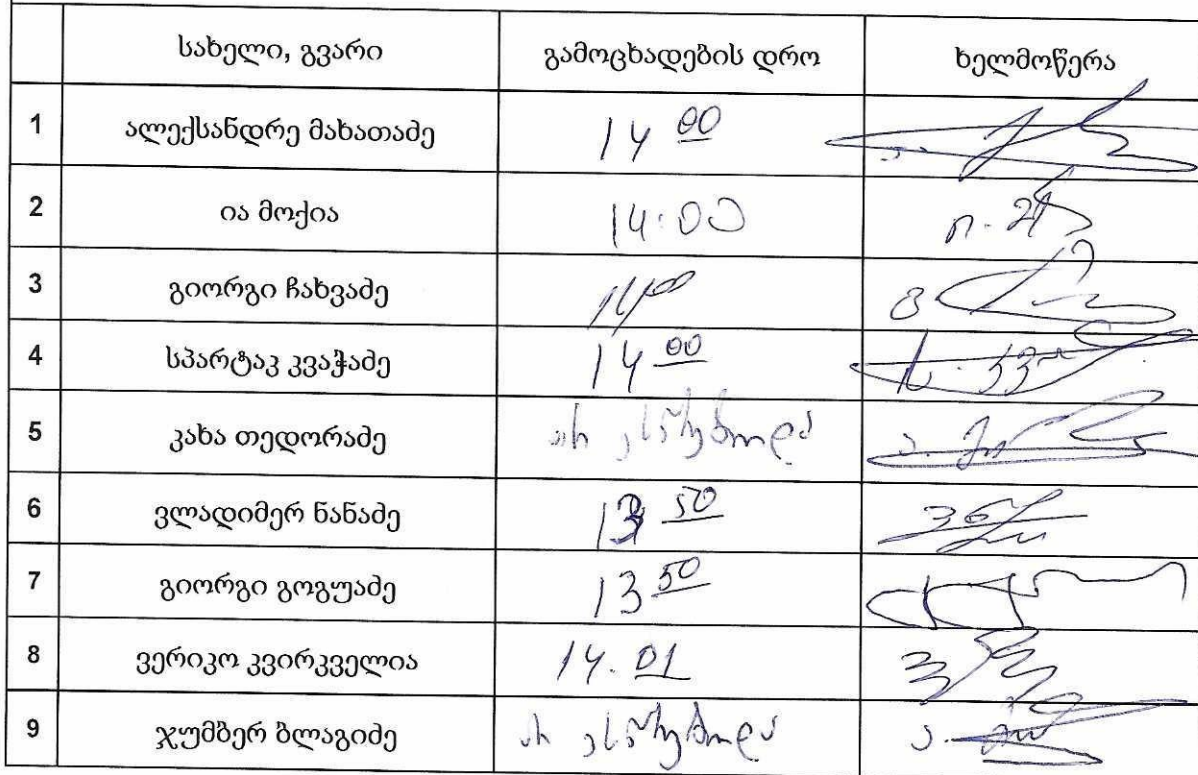 სახელი, გვარი გამოცხადების დრო ხელმოწერა
1 ალექსანდრე მახათაძე 14 00
2 ია მოქია 14:00
3 გიორგი ჩახვაძე 14 00
4 სპარტაკ კვაჭაძე 14 00
5 კახა თედორაძე არ ესწრებოდა
6 ვლადიმერ ნანაძე 13 50
7 გიორგი გოგუაძე 13 50
8 ვერიკო კვირკველია 14.01
9 ჯუმბერ ბლაგიძე არ ესწრებოდა